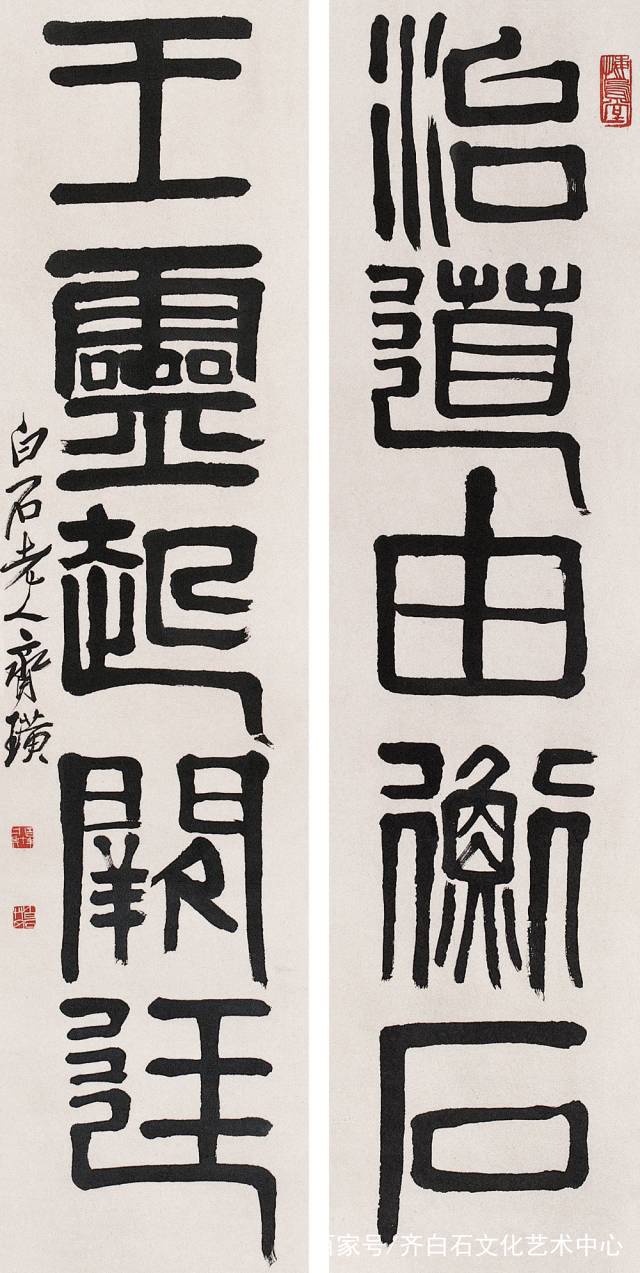 悔烏堂
治道由衡石
王靈起闕廷
白石老人齊璜
百家号/齐白石文化艺术中心